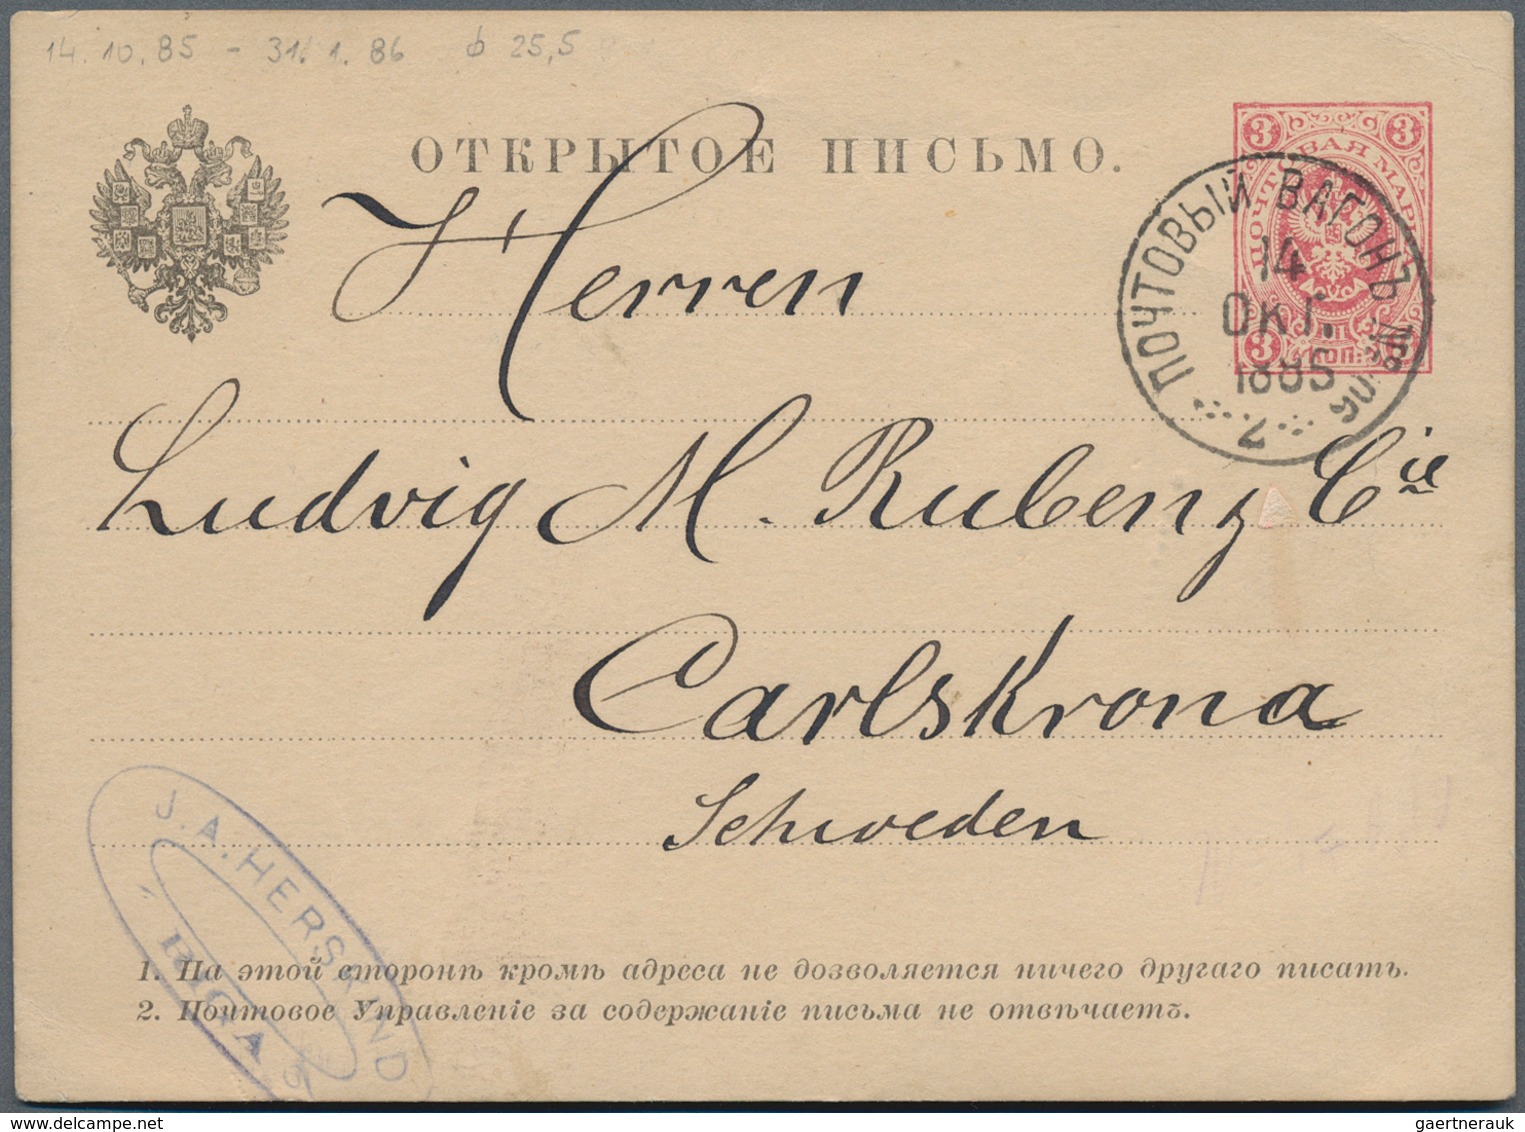 14.10.85 - 31.1.86 ϕ 25,5
ОТКРЫТОЕ ПИСЬМО.
3 3
ПОЧТОВАЯ МАРКА
3 КОП.
ПОЧТОВЫЙ ВАГОНЪ
14
ОКТ.
1885
2
Herren
Ludvig M. Ruben & Cie
Carlskrona
Schweden
J. A. HERSKIND
RIGA
1. На этой сторонѣ кромѣ адреса не дозволяется ничего другаго писать.
2. Почтовое Управленіе за содержаніе письма не отвѣчаетъ.
gaertnerauk@delcampe.net